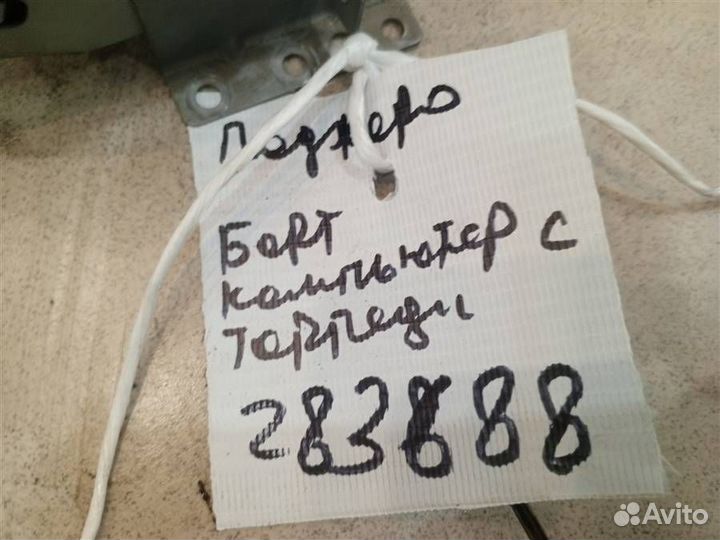 Паджеро
Борт
компьютер с
торпеды
283888
Avito